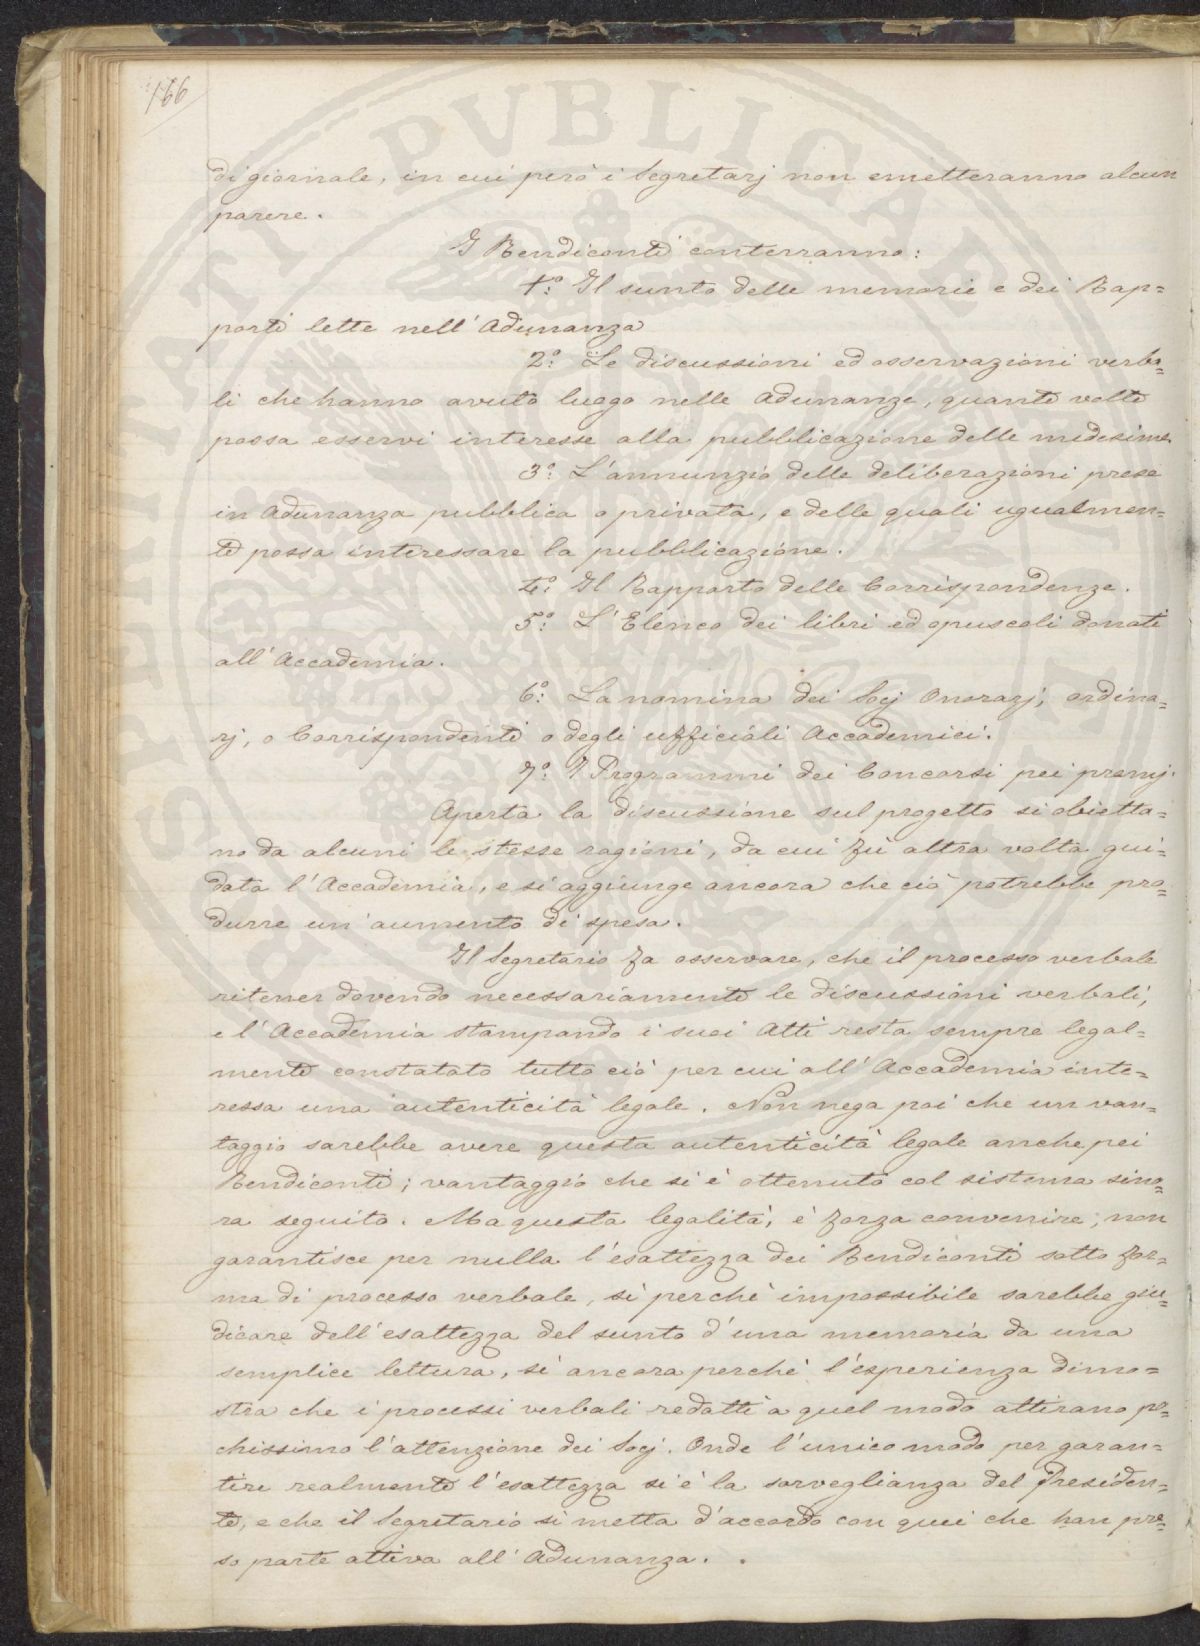 166
di giornale, in cui però i Segretarj non emetteranno alcun
parere.
I Rendiconti conterranno:
1.º Il sunto delle memorie e dei Rap=
porti lette nell'Adunanza
2.º Le discussioni ed osservazioni verba=
li che hanno avuto luogo nelle Adunanze, quante volte
possa esservi interesse alla pubblicazione delle medesime
3.º L'annunzio delle deliberazioni prese
in Adunanza pubblica o privata, e delle quali ugualmen=
te possa interessare la pubblicazione.
4.º Il Rapporto delle Corrispondenze.
5.º L'Elenco dei libri ed opuscoli donati
all'Accademia.
6.º La nomina dei Socj Onorarj, ordina=
rj, o Corrispondenti o degli ufficiali Accademici.
7.º I Programmi dei Concorsi pei premj.
Aperta la discussione sul progetto si obietta=
no da alcuni le stesse ragioni, da cui fù altra volta gui=
data l'Accademia, e si aggiunge ancora che ciò potrebbe pro=
durre un aumento di spesa.
Il Segretario fa osservare, che il processo verbale
ritener dovendo necessariamente le discussioni verbali,
e l'Accademia stampando i suoi Atti resta sempre legal=
mente constatato tutto ciò per cui all'Accademia inte=
ressa una autenticità legale. Non nega poi che un van=
taggio sarebbe avere questa autenticità legale anche pei
Rendiconti; vantaggio che si è ottenuto col sistema sino=
ra seguito. Ma questa legalità, è forza convenire, non
garantisce per nulla l'esattezza dei Rendiconti sotto for=
ma di processo verbale, sì perchè impossibile sarebbe giu=
dicare dell'esattezza del sunto d'una memoria da una
semplice lettura, sì ancora perchè l'esperienza dimo=
stra che i processi verbali redatti a quel modo attirano po=
chissimo l'attenzione dei Socj. Onde l'unico modo per garan=
tire realmente l'esattezza si è la sorveglianza del Presiden=
te, e che il Segretario si metta d'accordo con quei che han pre=
so parte attiva all'Adunanza.
PVBLICAE